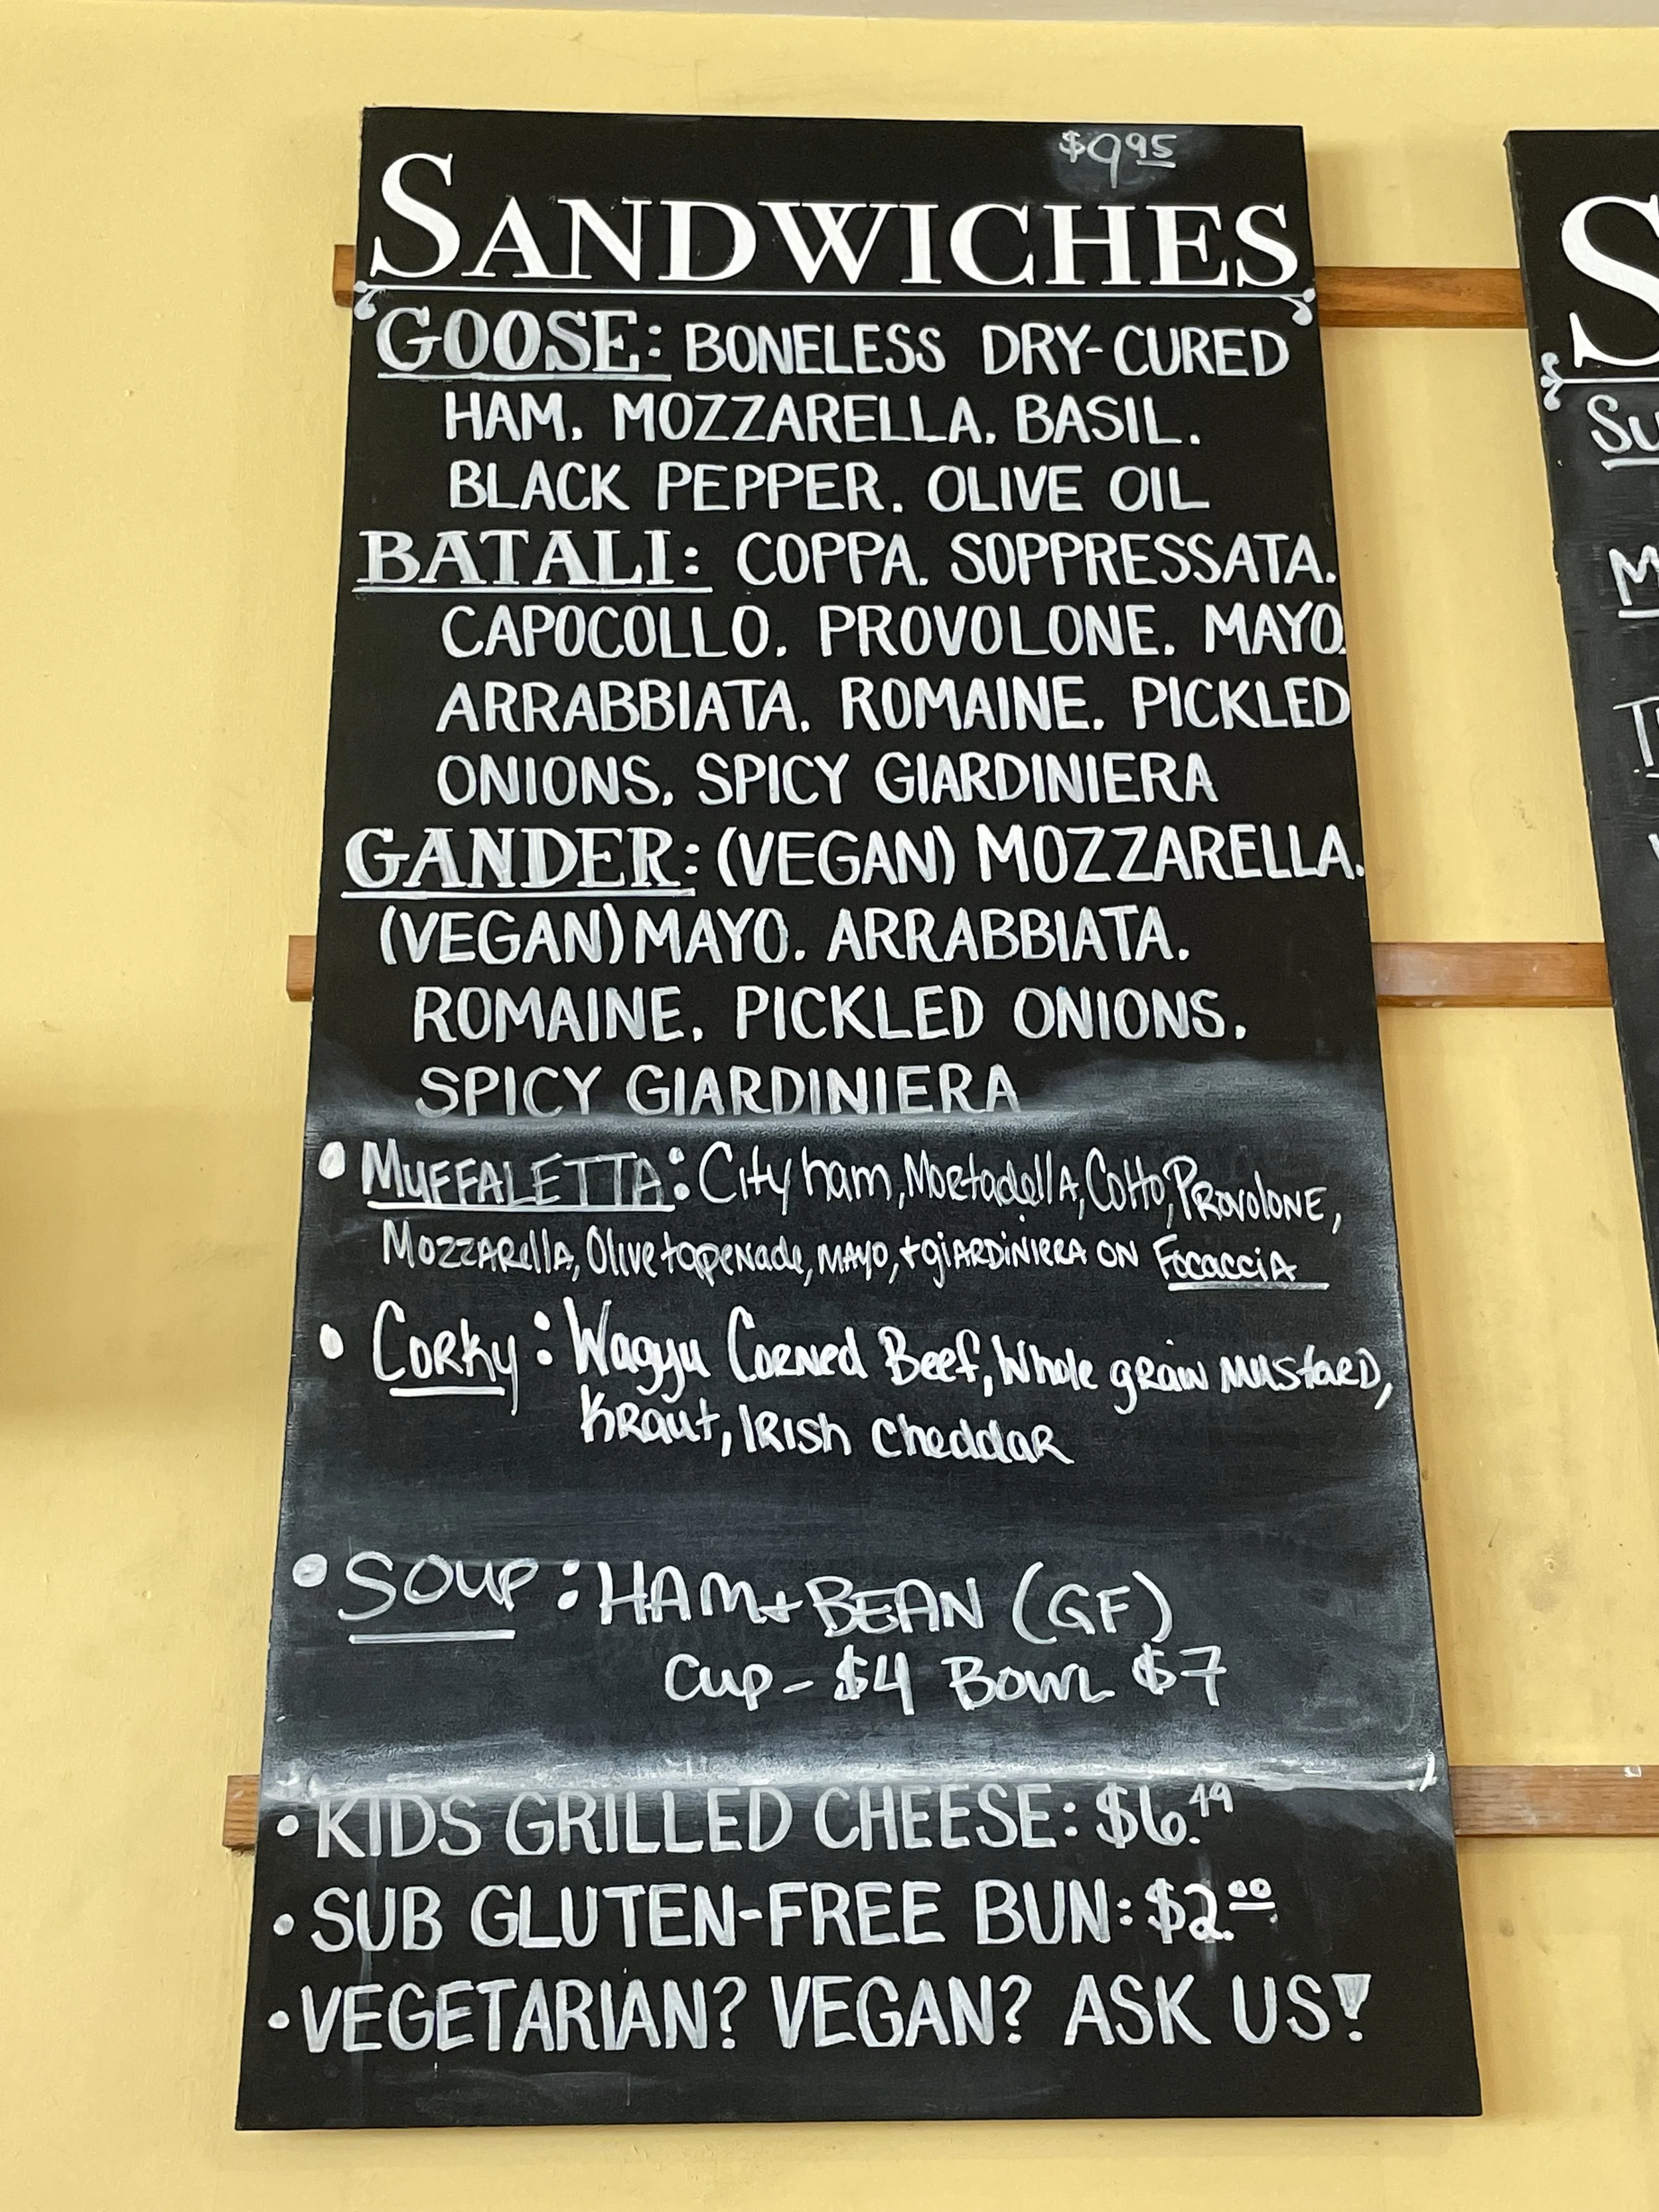 $9.95
SANDWICHES
GOOSE: BONELESS DRY-CURED
HAM, MOZZARELLA, BASIL,
BLACK PEPPER, OLIVE OIL
BATALI: COPPA, SOPPRESSATA,
CAPOCOLLO, PROVOLONE, MAYO,
ARRABBIATA, ROMAINE, PICKLED
ONIONS, SPICY GIARDINIERA
GANDER: (VEGAN) MOZZARELLA,
(VEGAN) MAYO, ARRABBIATA,
ROMAINE, PICKLED ONIONS,
SPICY GIARDINIERA
• MUFFALETTA: City ham, Mortadella, Cotto, Provolone,
Mozzarella, Olive tapenade, mayo, + giardiniera on Focaccia
• Corky: Wagyu Corned Beef, Whole grain mustard,
Kraut, Irish Cheddar
• SOUP: HAM + BEAN (GF)
Cup - $4 Bowl $7
• KIDS GRILLED CHEESE: $6.49
• SUB GLUTEN-FREE BUN: $2.00
• VEGETARIAN? VEGAN? ASK US!
S
Su
M